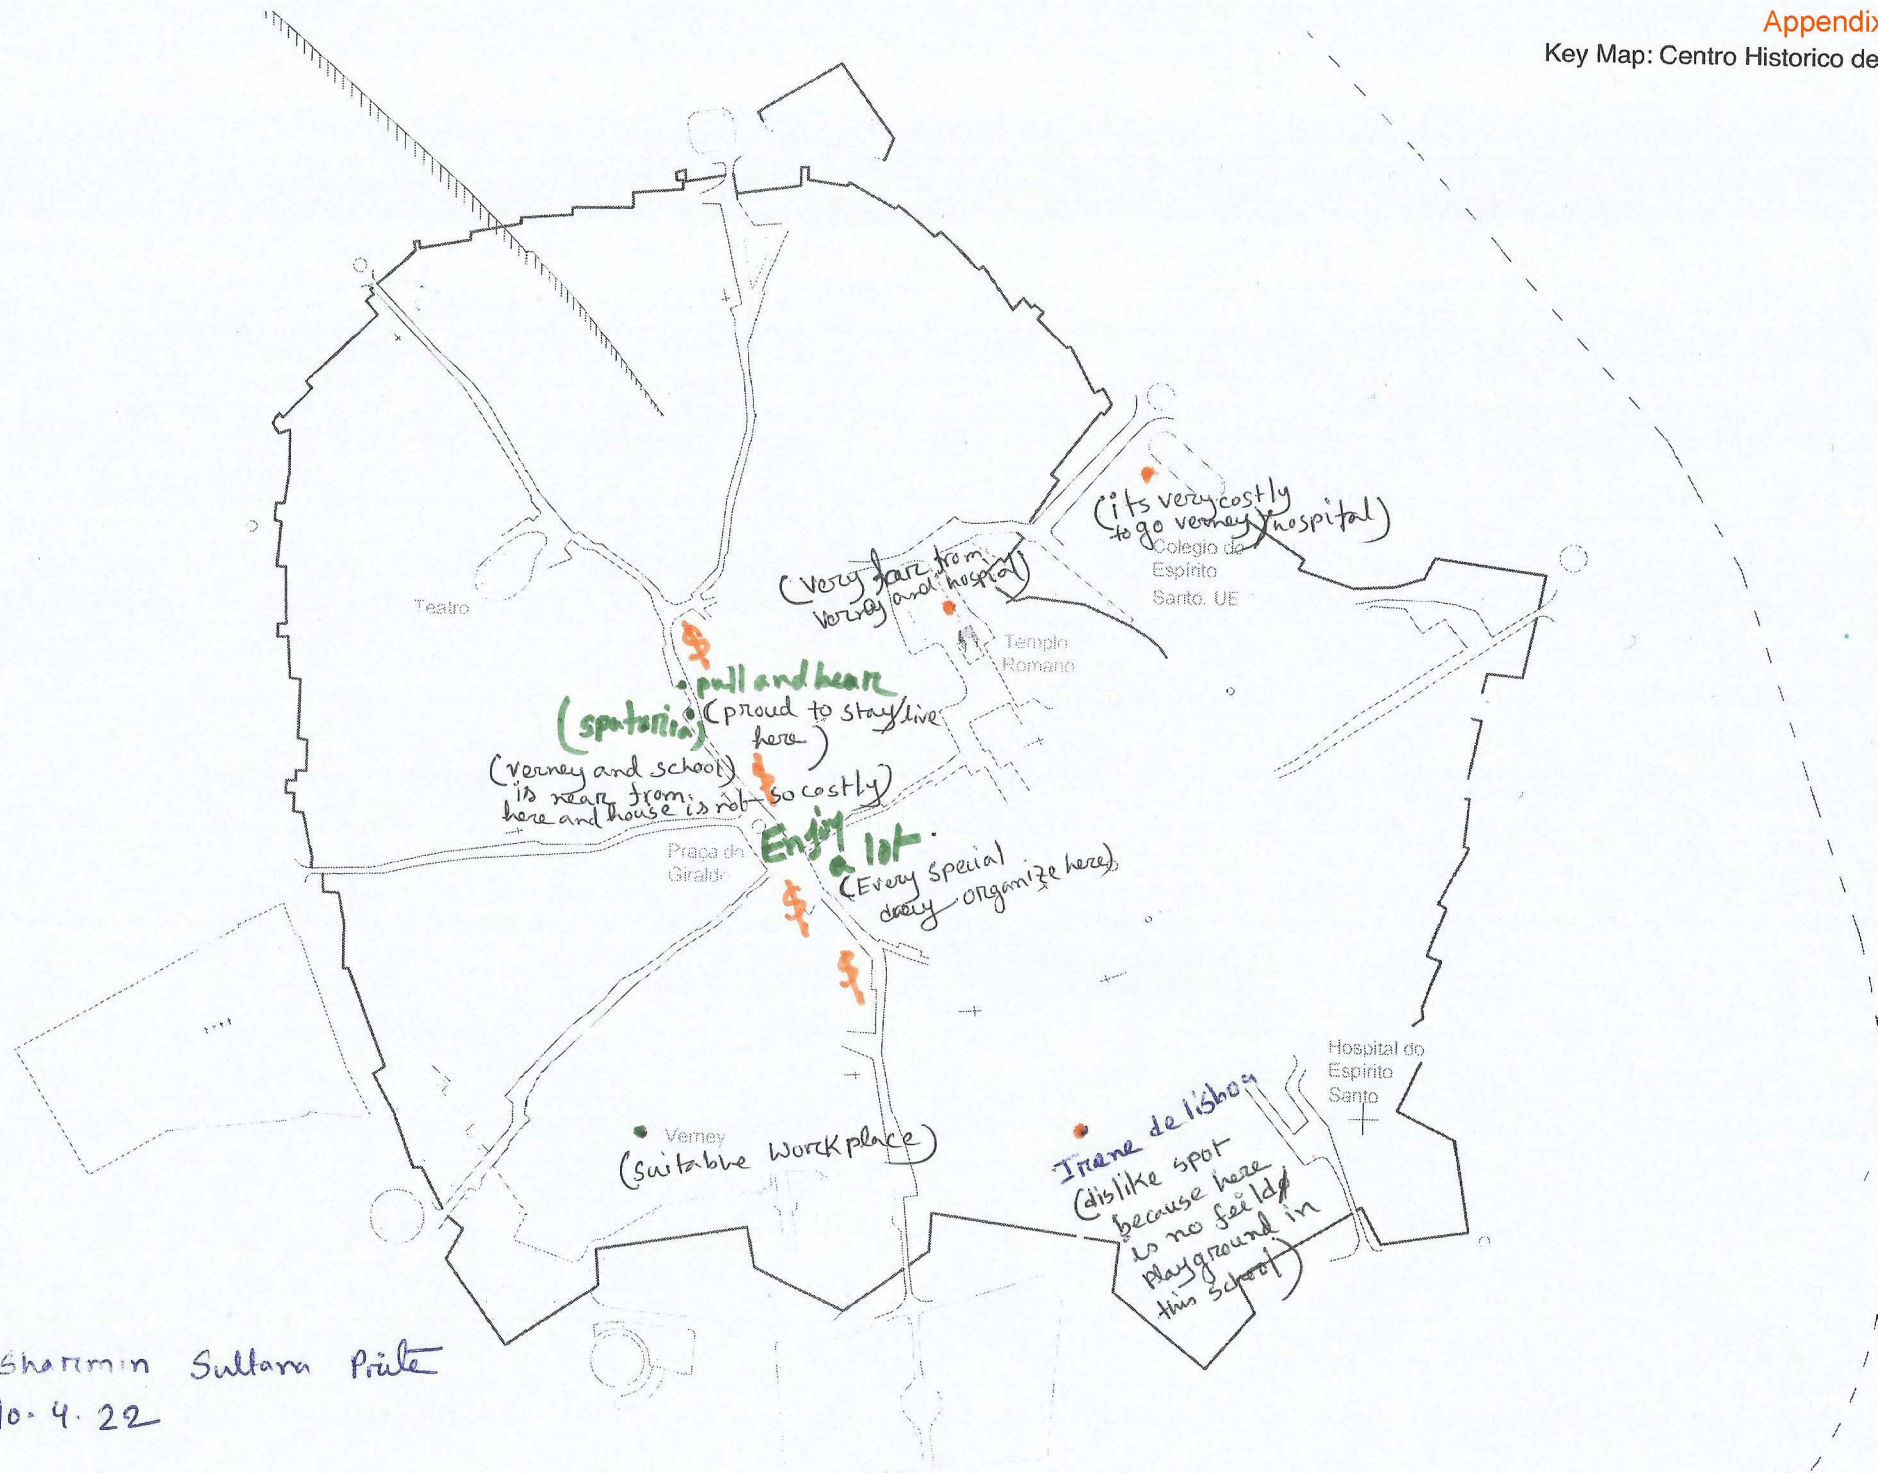 Appendix
Key Map: Centro Historico de
(its very costly
to go verney/hospital)
Colegio do
Espírito
Santo. UE
(very fare from
verney and hospital)
Templo
Romano
Teatro
$
pull and bear
(sputaria)
(proud to stay/live
here)
(verney and school)
is near from
here and house is not so costly)
$
Enjoy
a lot.
Praça do
Giraldo
(Every special
day organize here)
$
$
Hospital do
Espírito
Santo
Verney
(suitable work place)
Irene de lisboa
(dislike spot
because here
is no feild
playground in
this school)
Sharmin Sultana
10.4.22